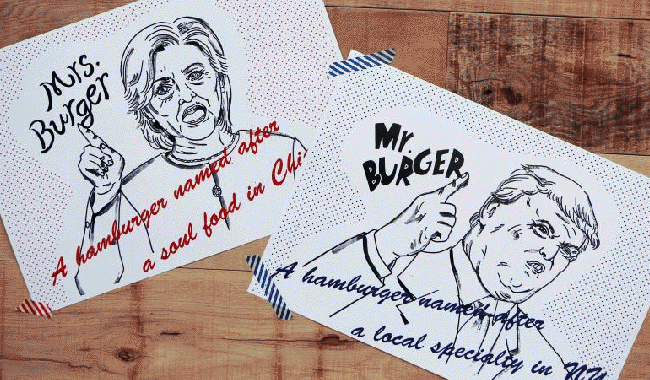 Mrs.
Burger
A hamburger named after
a soul food in Chi
Mr.
BURGER
A hamburger named after
a local specialty in NY